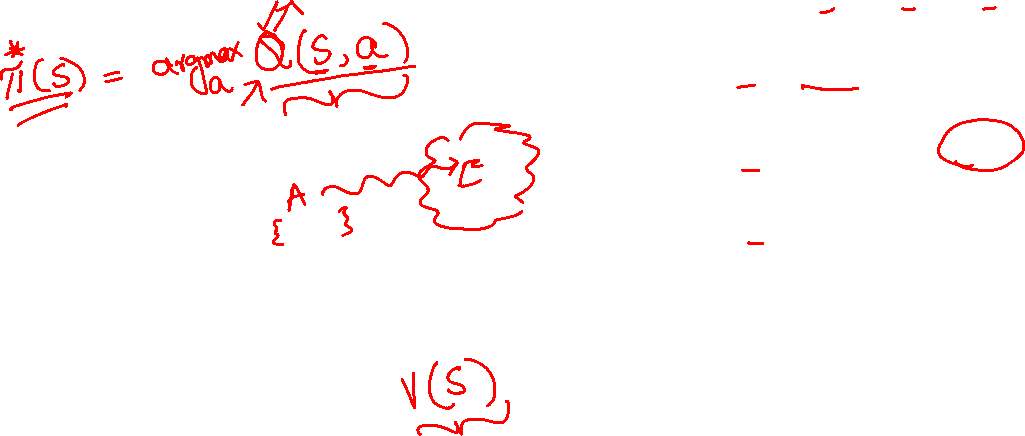 π*(S) = argmax_a Q(S, a)
A { } E
V(S)